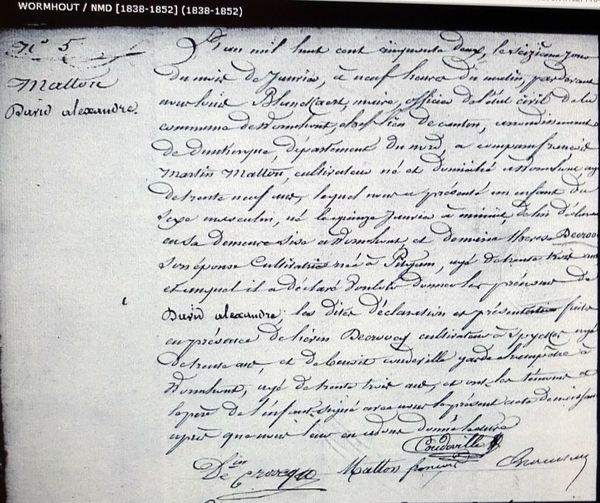 WORMHOUT / NMD [1838-1852] (1838-1852)
N° 5
Matton
David alexandre.
L'an mil huit cent cinquante deux, le seizième jour
du mois de Janvier, à neuf heures du matin, par devant
nous Blanckaert, maire, officier de l'état civil de la
commune de Wormhout, chef lieu de canton, arrondissement
de Dunkerque, département du nord, a comparu françois
Martin Matton, cultivateur né et domicilié à Wormhout, agé
de trente neuf ans, lequel nous a présenté un enfant du
sexe masculin, né le quinze Janvier à minuit, de lui déclarant
en sa demeure sise à Wormhout et de marie therese
son épouse cultivatrice née à Pitgam, agée de trente trois ans
et auquel il a déclaré vouloir donner les prénoms de
David alexandre. les dites déclaration et présentation faites
en présence de liévin Decroocq cultivateur à Spycker agé
de trente ans, et de benoit Coudeville garde champêtre à
Wormhout, agé de trente trois ans, et ont les témoins et
le père de l'enfant signé avec nous le présent acte de naissance
après que nous leur en avons donné lecture
Coudeville
Matton françois